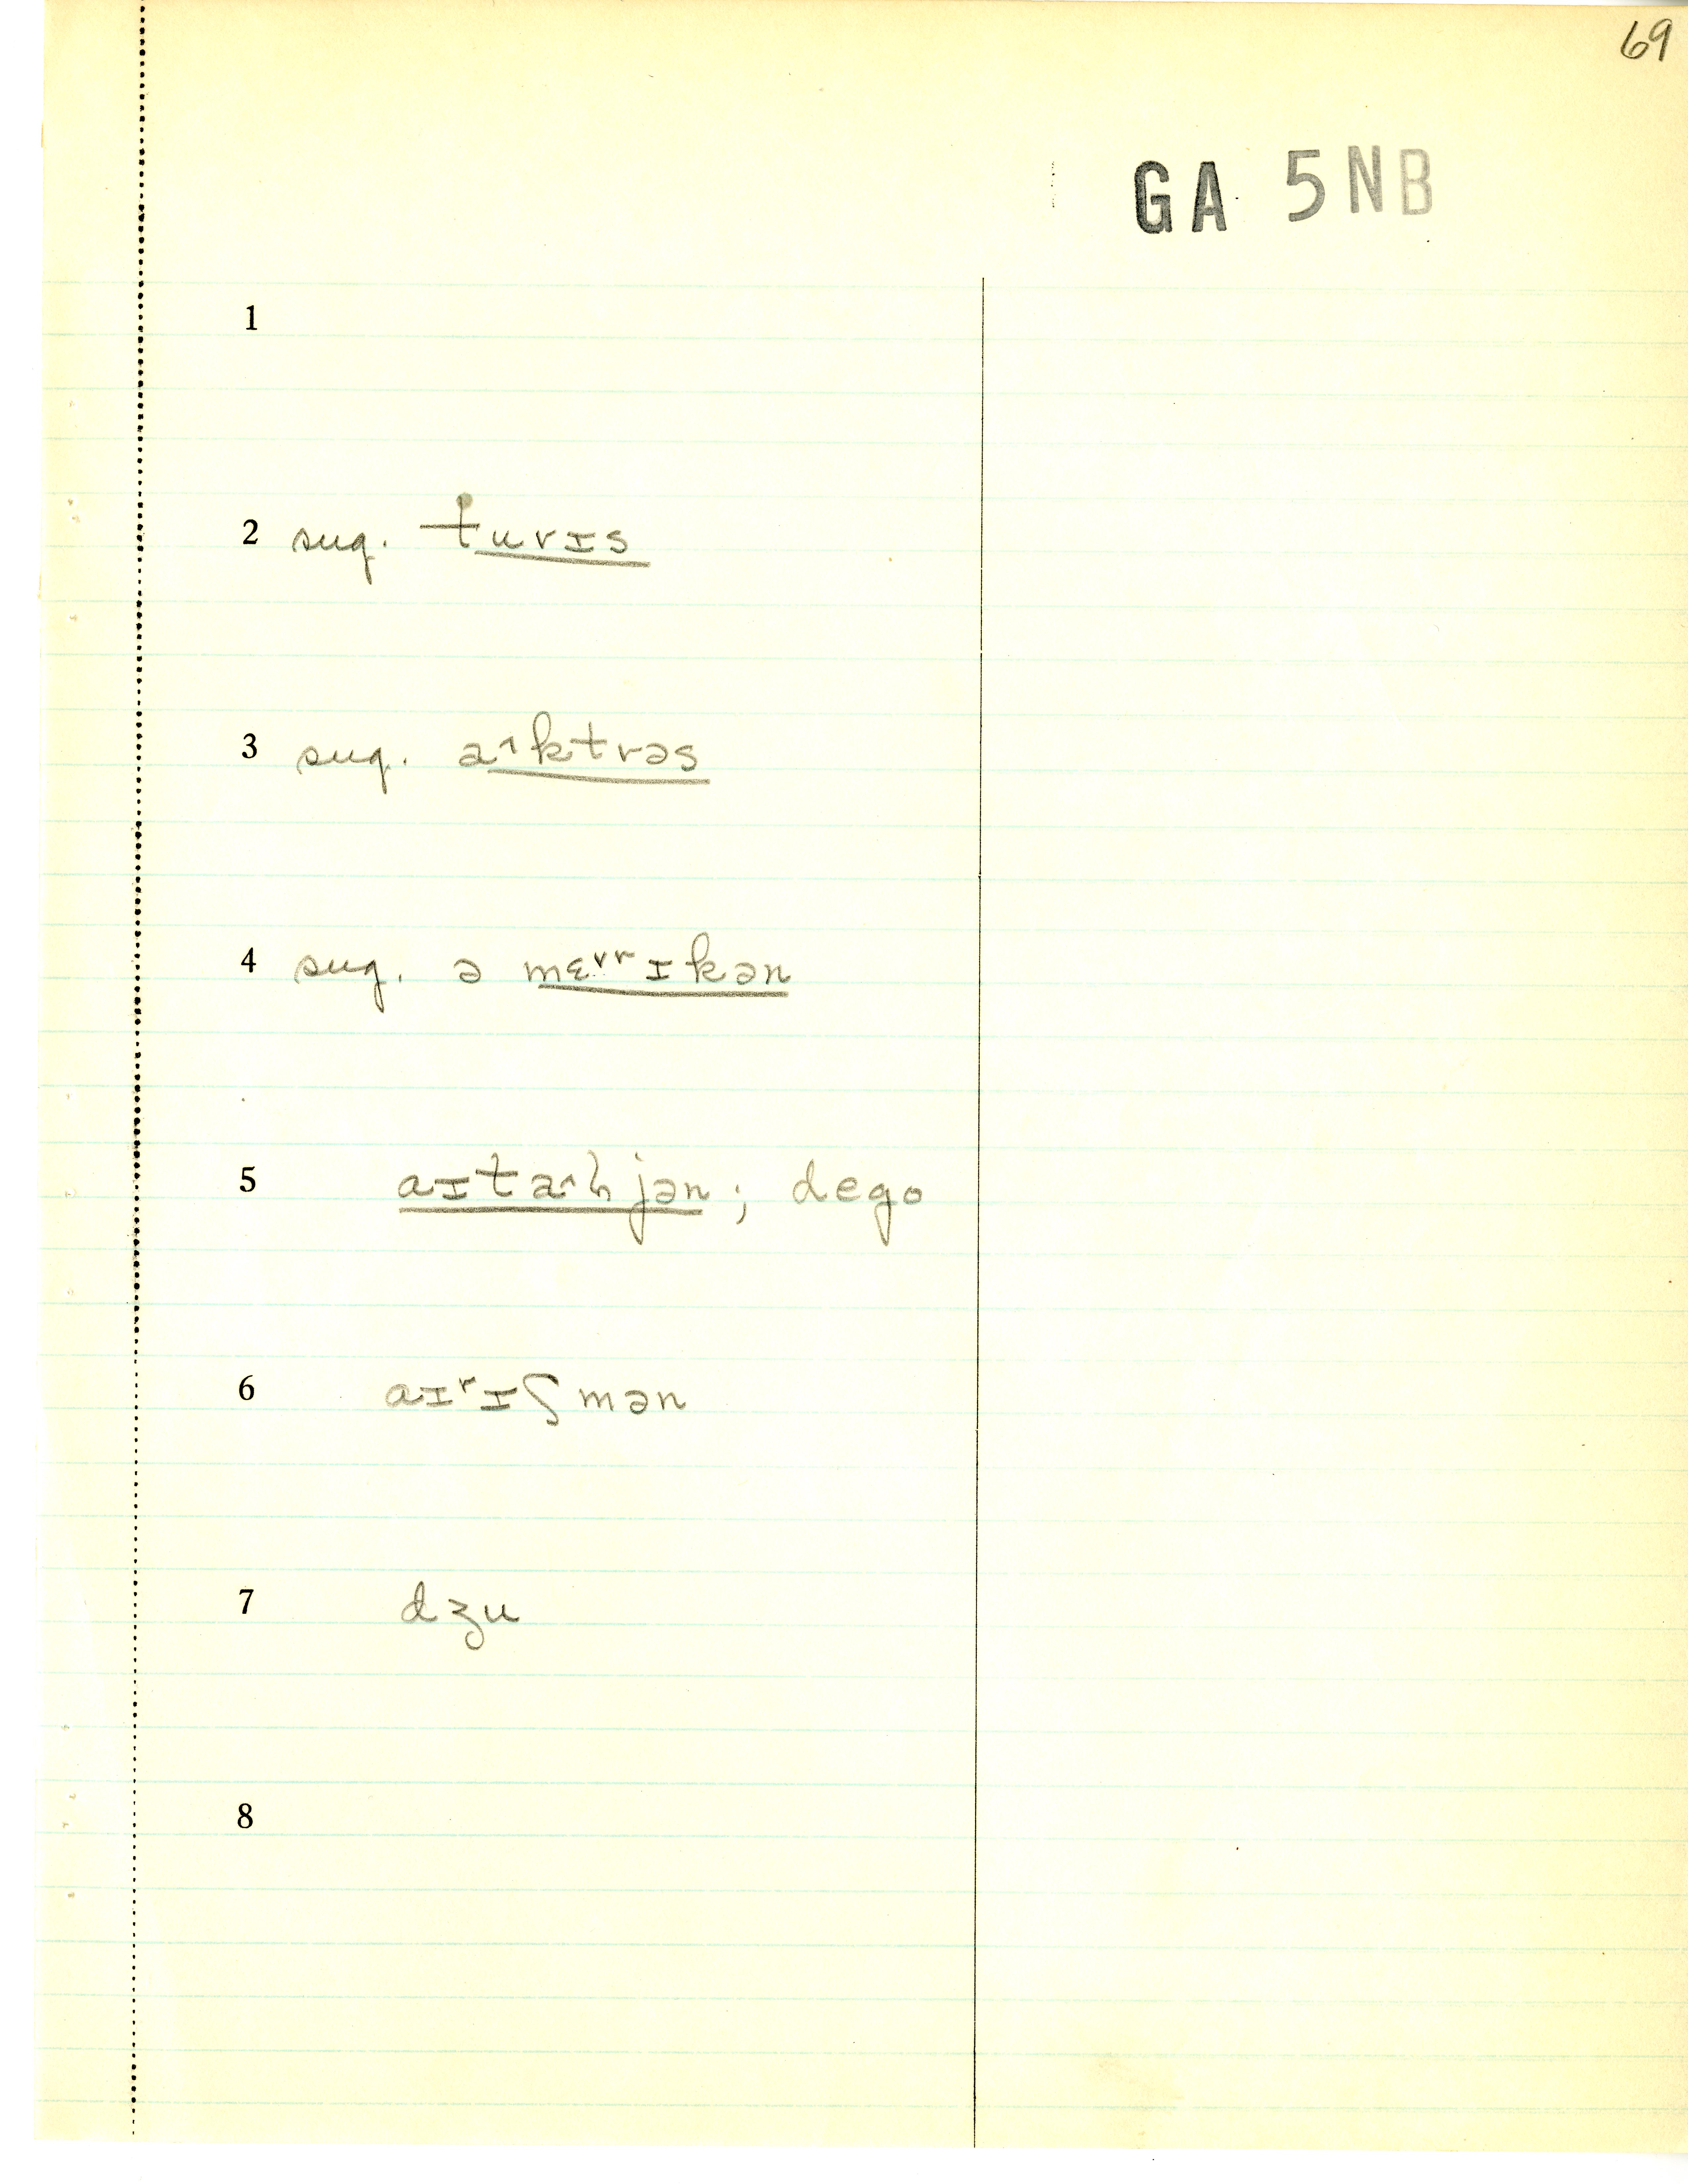 69
GA 5NB
1
2 sug. turɪs
3 sug. a˄ktrəs
4 sug. ə mɛʳʳɪkən
5 aɪta˄ljən; dego
6 aɪʳɪʃmən
7 dʒu
8